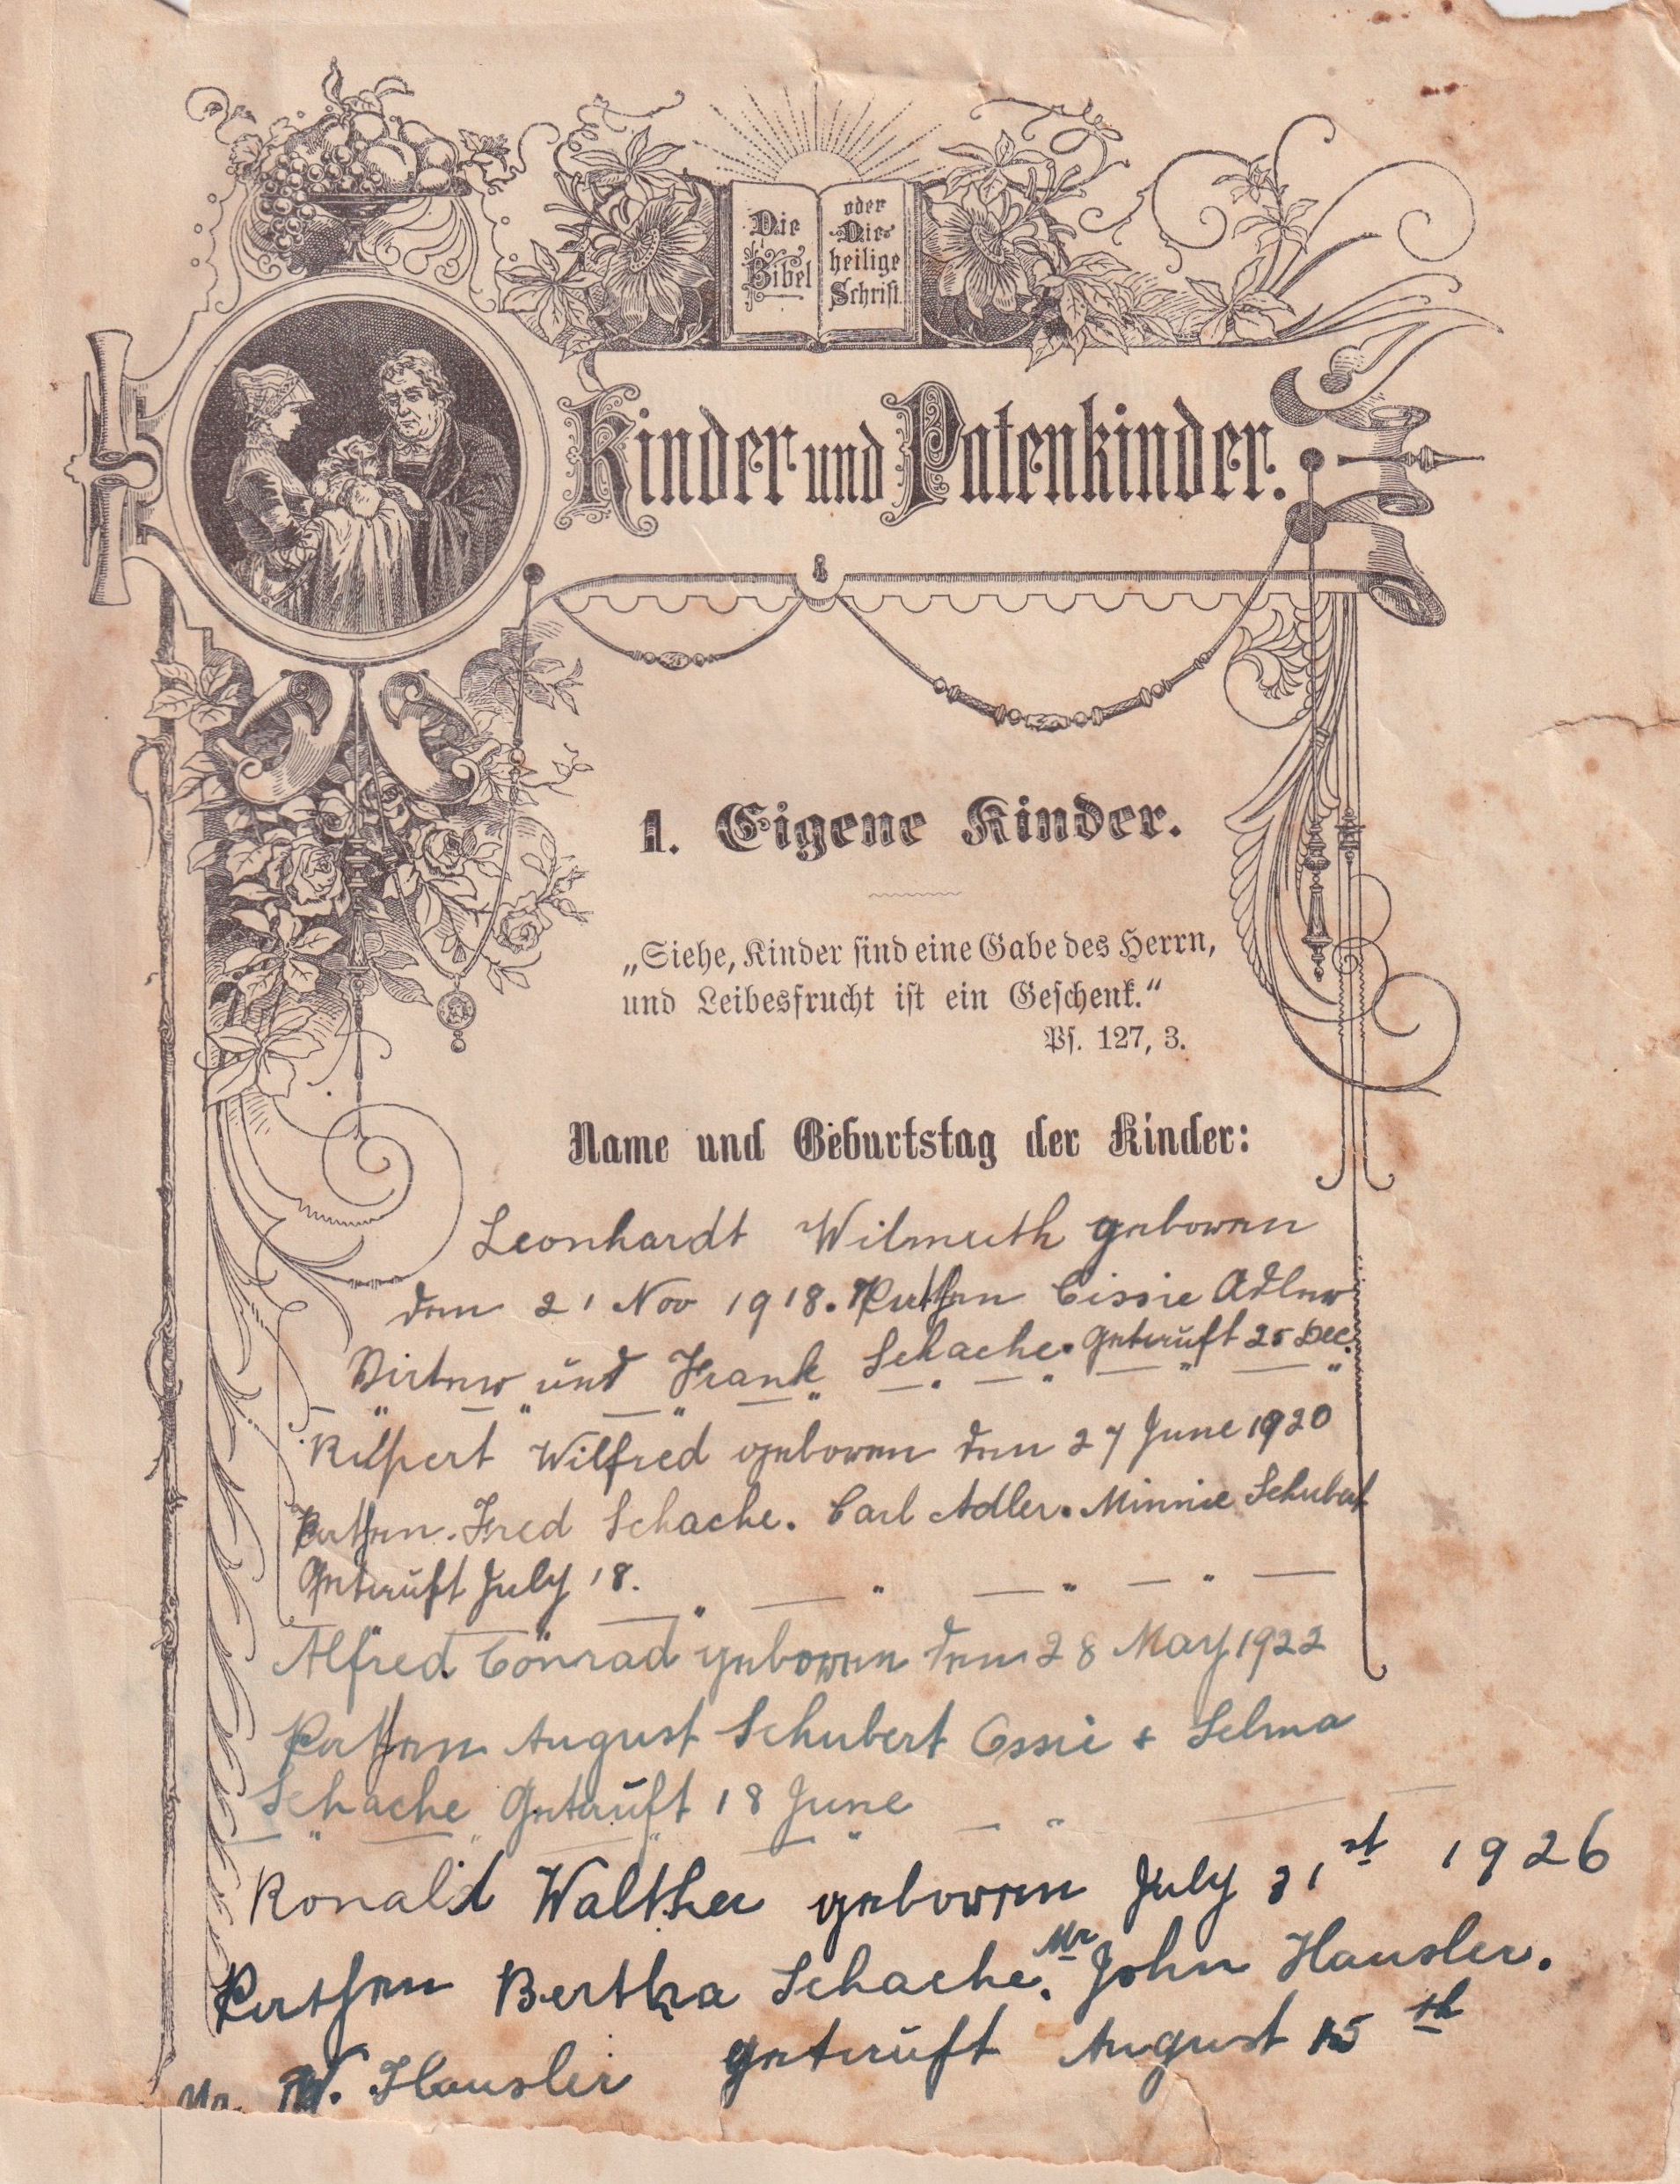 Die
Bibel
oder
Die
heilige
Schrift.
Kinder und Patenkinder.
1. Eigene Kinder.
„Siehe, Kinder sind eine Gabe des Herrn,
und Leibesfrucht ist ein Geschenk.“
Ps. 127, 3.
Name und Geburtstag der Kinder:
Leonhardt Wilmuth geboren
den 21 Nov 1918. Pathen Cissie Adler
und Frank Schache. Getauft 25 Dec.
Rupert Wilfred geboren den 27 June 1920
Pathen. Fred Schache. Carl Adler. Minnie Schubert
Getauft July 18.
Alfred Conrad geboren den 28 May 1922
Pathen August Schubert Ossie + Selma
Schache Getauft 18 June
Ronald Walther geboren July 31st 1926
Pathen Bertha Schache. Mr John Hausler.
W. Hausler getauft August 15th